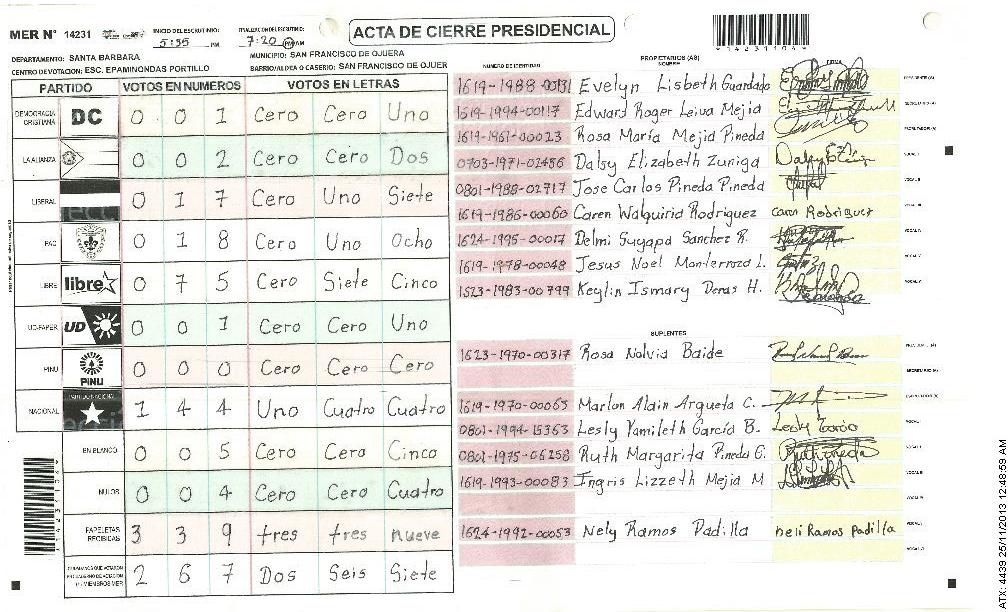 MER N° 14231
INICIO DEL ESCRUTINIO:
5:55 PM
FINALIZACION DEL ESCRUTINIO:
7:20 PM AM
ACTA DE CIERRE PRESIDENCIAL
14231104
DEPARTAMENTO: SANTA BARBARA
MUNICIPIO: SAN FRANCISCO DE OJUERA
CENTRO DE VOTACION: ESC. EPAMINONDAS PORTILLO
BARRIO/ALDEA O CASERIO: SAN FRANCISCO DE OJUER
PARTIDO VOTOS EN NUMEROS VOTOS EN LETRAS
DEMOCRACIA CRISTIANA DC 0 0 1 Cero Cero Uno
LA ALIANZA 0 0 2 Cero Cero Dos
LIBERAL 0 1 7 Cero Uno Siete
PAC 0 1 8 Cero Uno Ocho
LIBRE libre 0 7 5 Cero Siete Cinco
UD-FAPER UD 0 0 1 Cero Cero Uno
PINU PINU 0 0 0 Cero Cero Cero
NACIONAL PARTIDO NACIONAL 1 4 4 Uno Cuatro Cuatro
EN BLANCO 0 0 5 Cero Cero Cinco
NULOS 0 0 4 Cero Cero Cuatro
PAPELETAS RECIBIDAS 3 3 9 tres tres nueve
2 6 7 Dos Seis Siete
NUMERO DE IDENTIDAD PROPIETARIOS (AS)
NOMBRE FIRMA
1619-1988-00131 Evelyn Lisbeth Guardado
1619-1994-00117 Edward Roger Leiva Mejia
1619-1961-00023 Rosa María Mejia Pineda
0703-1971-02486 Dalsy Elizabeth Zuniga
0801-1988-02717 Jose Carlos Pineda Pineda
1619-1986-00060 Caren Walquirid Rodriguez caren Rodriguez
1624-1995-00017 Delmi Suyapa Sanchez R.
1619-1978-00048 Jesus Noel Monterroza L.
1523-1983-00799 Keylin Ismary Deras H.
SUPLENTES
1623-1970-00317 Rosa Nolvia Baide
1619-1970-00063 Marlon Aldin Argueta C.
0801-1994-15363 Lesly Yamileth García B.
0801-1975-06258 Ruth Margarita Pineda G.
1619-1993-00083 Ingris Lizzeth Mejia M
1624-1992-00053 Nely Ramos Padilla neli Ramos Padilla
ATX: 4439 25/11/2013 12:48:59 AM